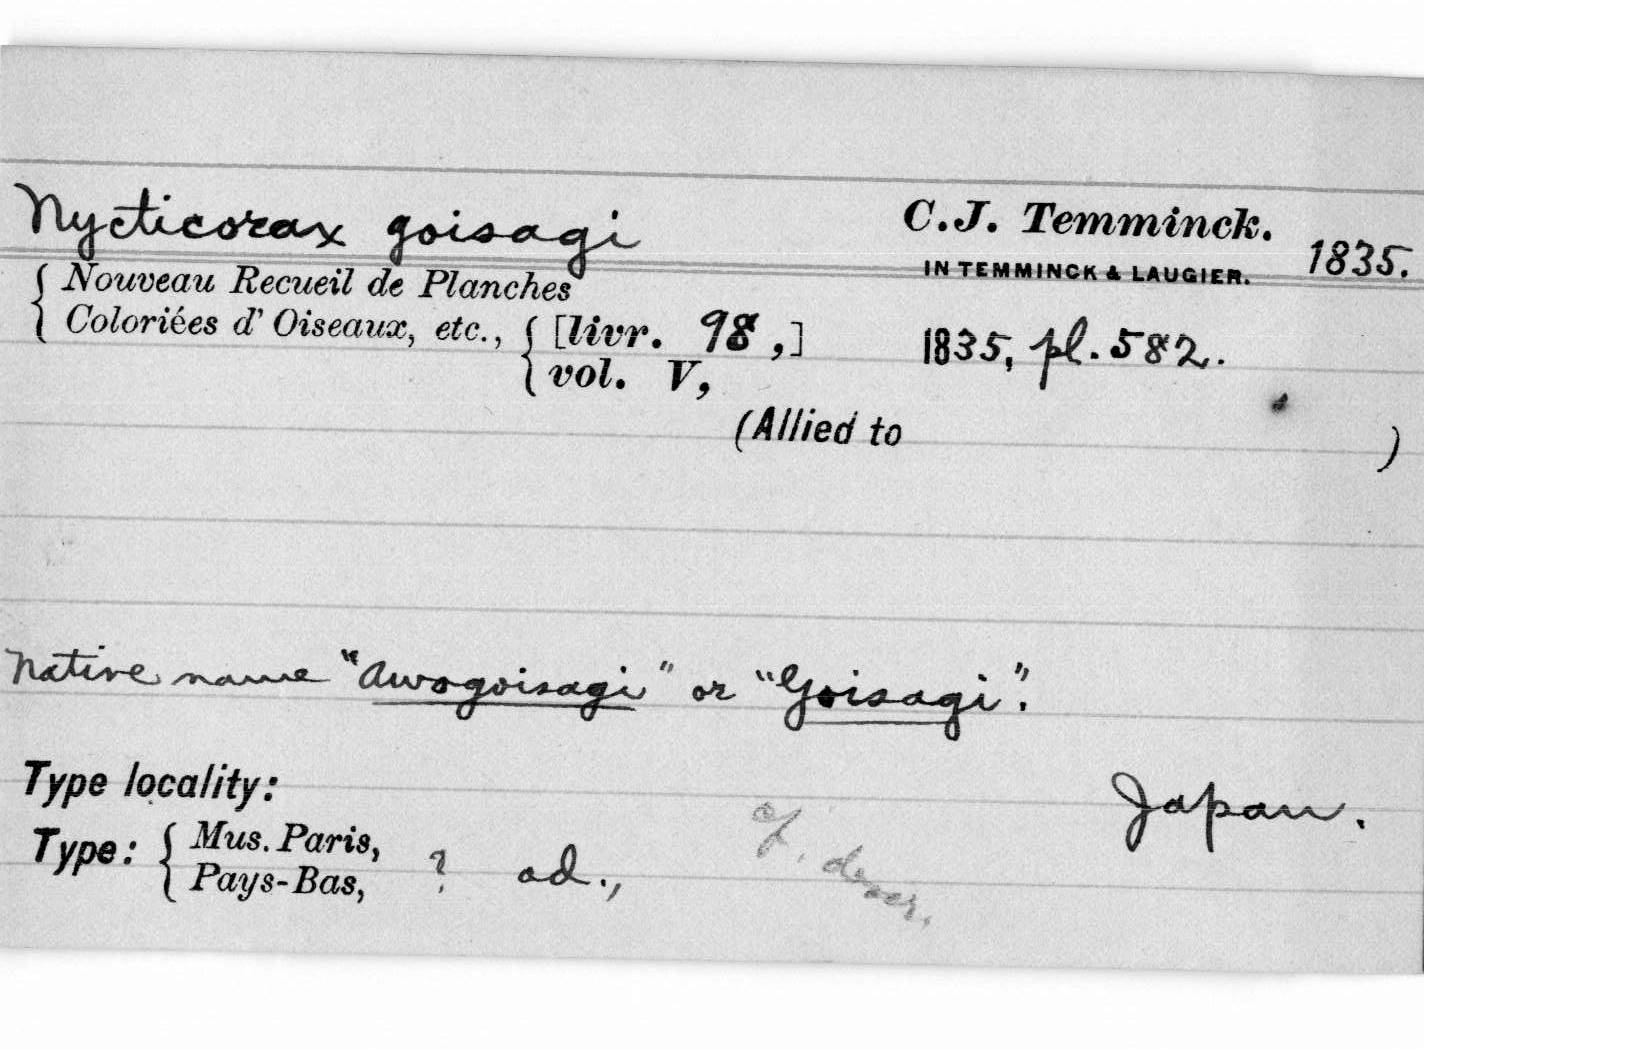 Nycticorax goisagi C.J. Temminck.
IN TEMMINCK & LAUGIER. 1835.
{ Nouveau Recueil de Planches
Coloriées d' Oiseaux, etc., { [livr. 98,] 1835, pl. 582.
vol. V,
(Allied to )
Native name "Awogoisagi" or "Goisagi".
Type locality: Japan.
Type: { Mus. Paris,
Pays-Bas, ? ad.,
cf. descr.